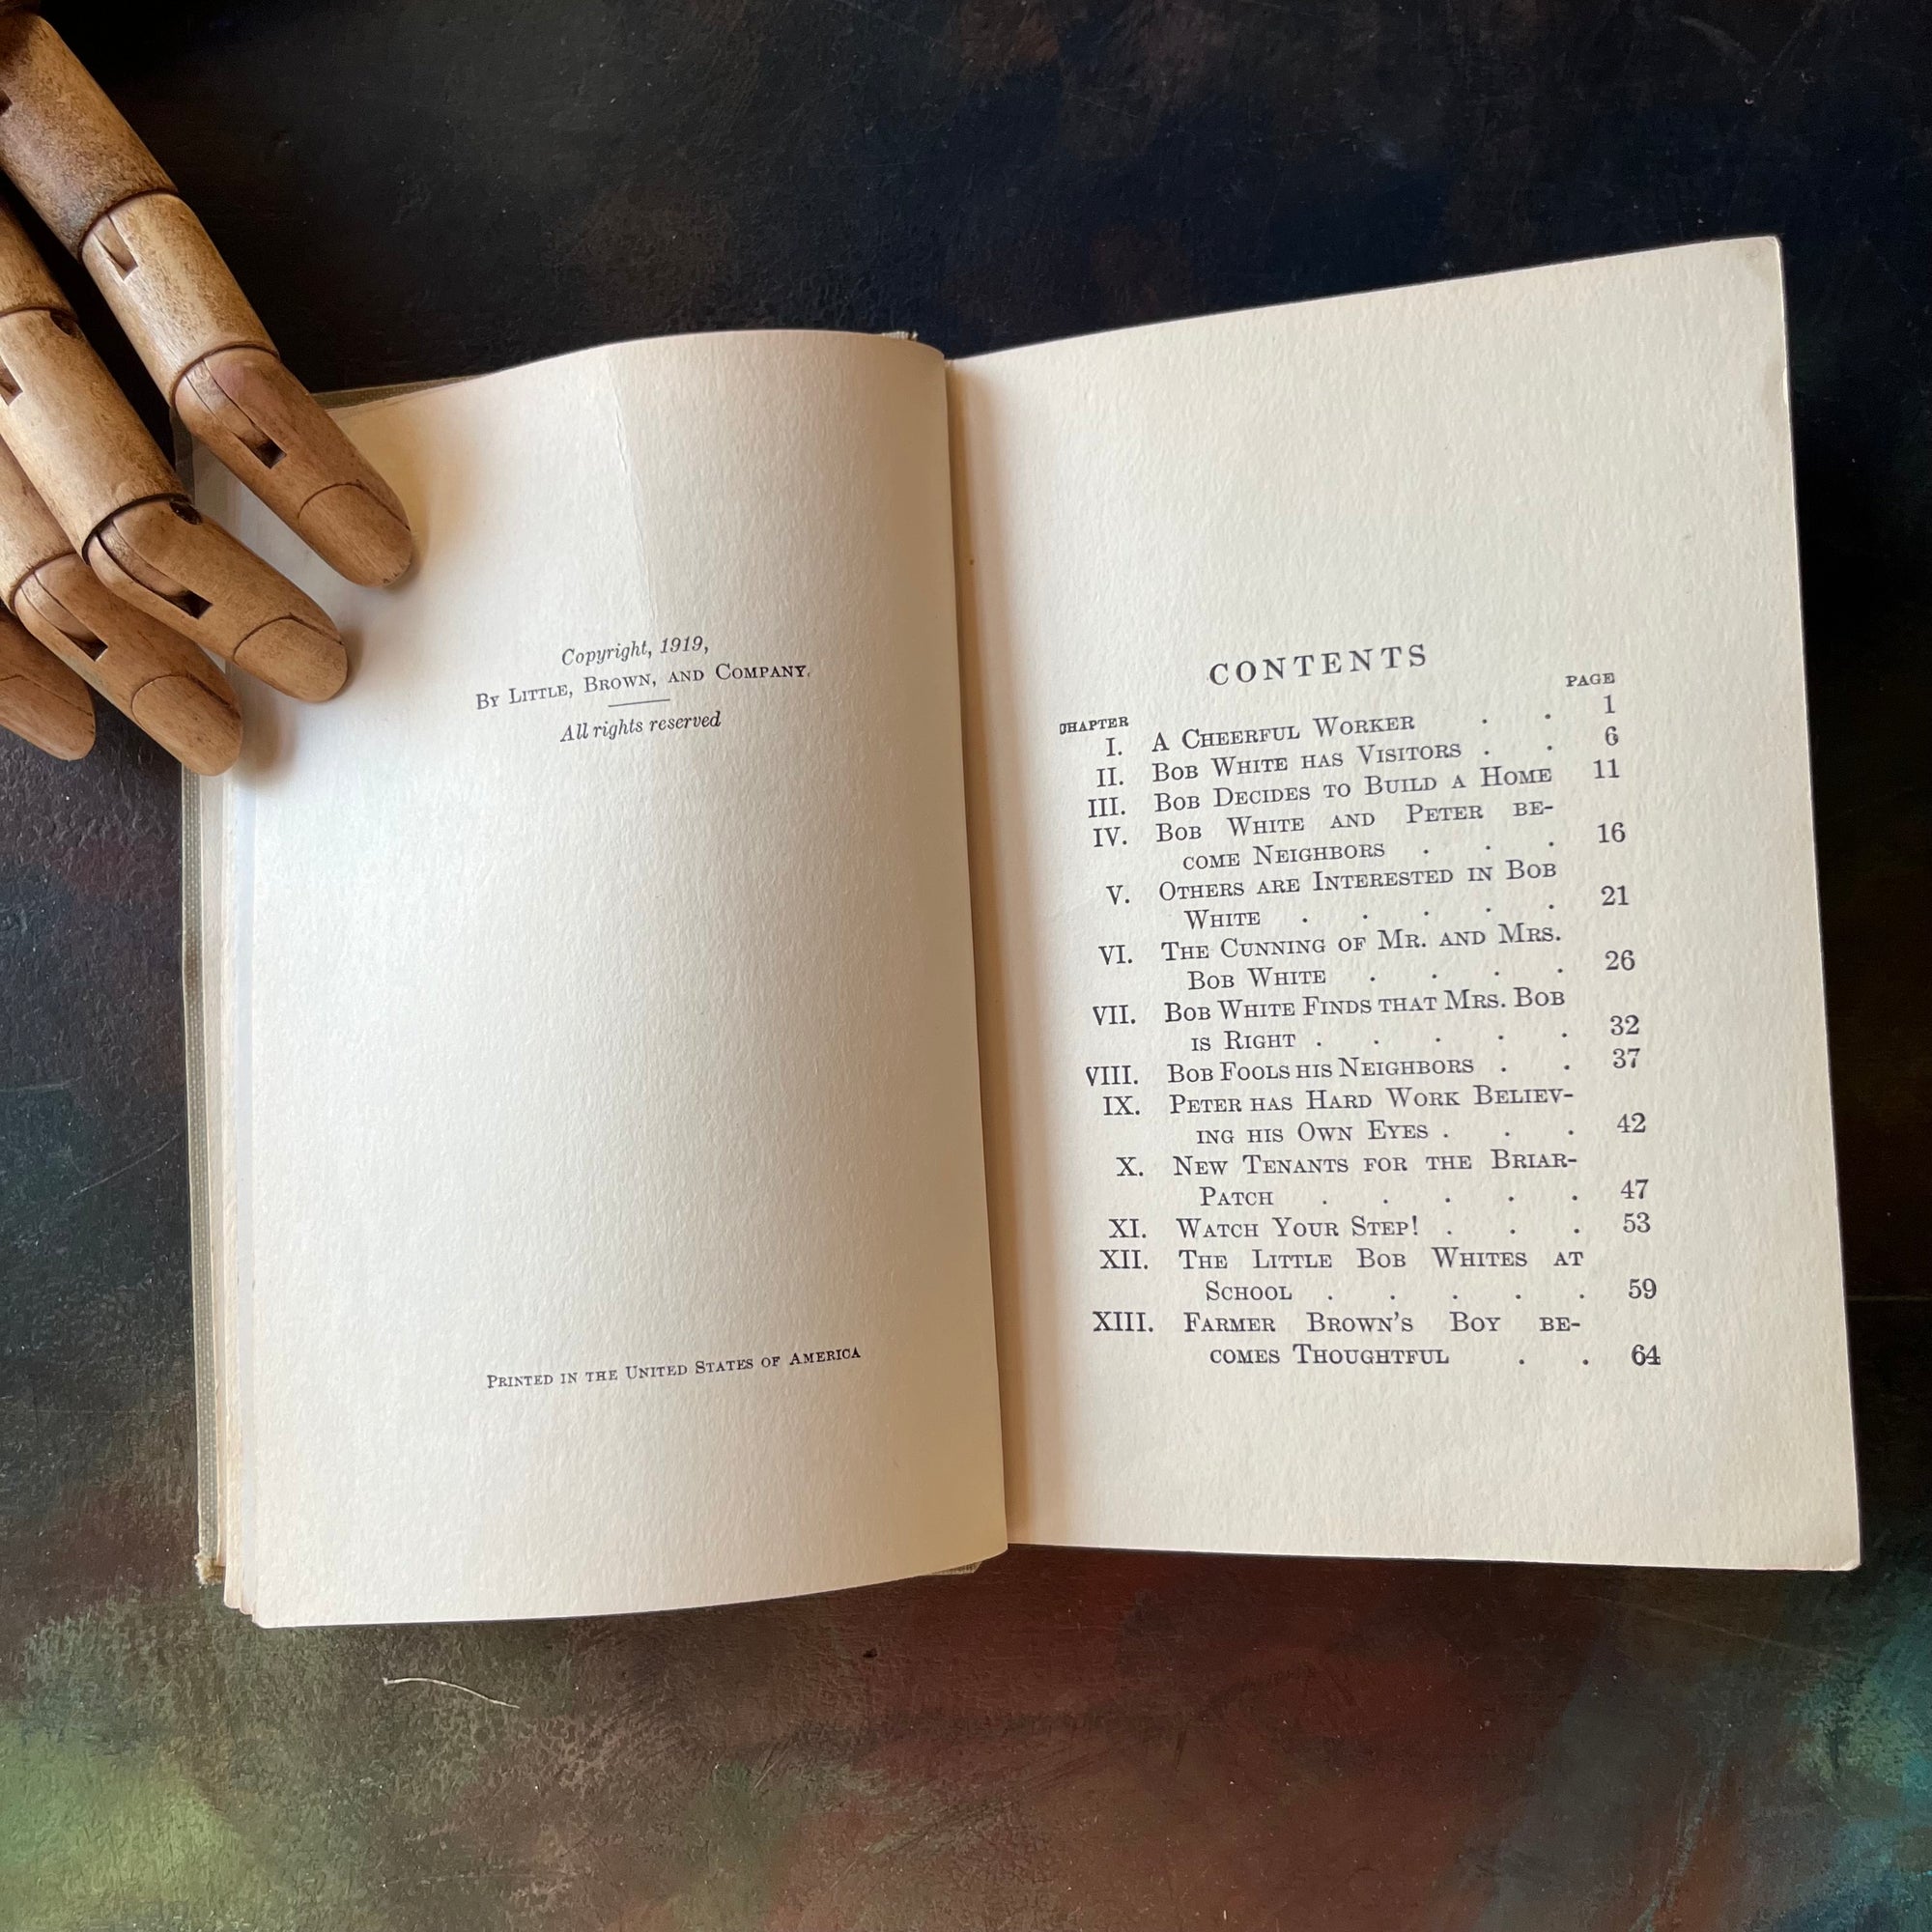 Copyright, 1919,
By Little, Brown, and Company.
All rights reserved
Printed in the United States of America
CONTENTS
CHAPTER PAGE
I. A Cheerful Worker . . 1
II. Bob White has Visitors . . 6
III. Bob Decides to Build a Home 11
IV. Bob White and Peter be-
come Neighbors . . . 16
V. Others are Interested in Bob
White . . . . . 21
VI. The Cunning of Mr. and Mrs.
Bob White . . . . 26
VII. Bob White Finds that Mrs. Bob
is Right . . . . . 32
VIII. Bob Fools his Neighbors . . 37
IX. Peter has Hard Work Believ-
ing his Own Eyes . . . 42
X. New Tenants for the Briar-
Patch . . . . . 47
XI. Watch Your Step! . . . 53
XII. The Little Bob Whites at
School . . . . . 59
XIII. Farmer Brown's Boy be-
comes Thoughtful . . 64